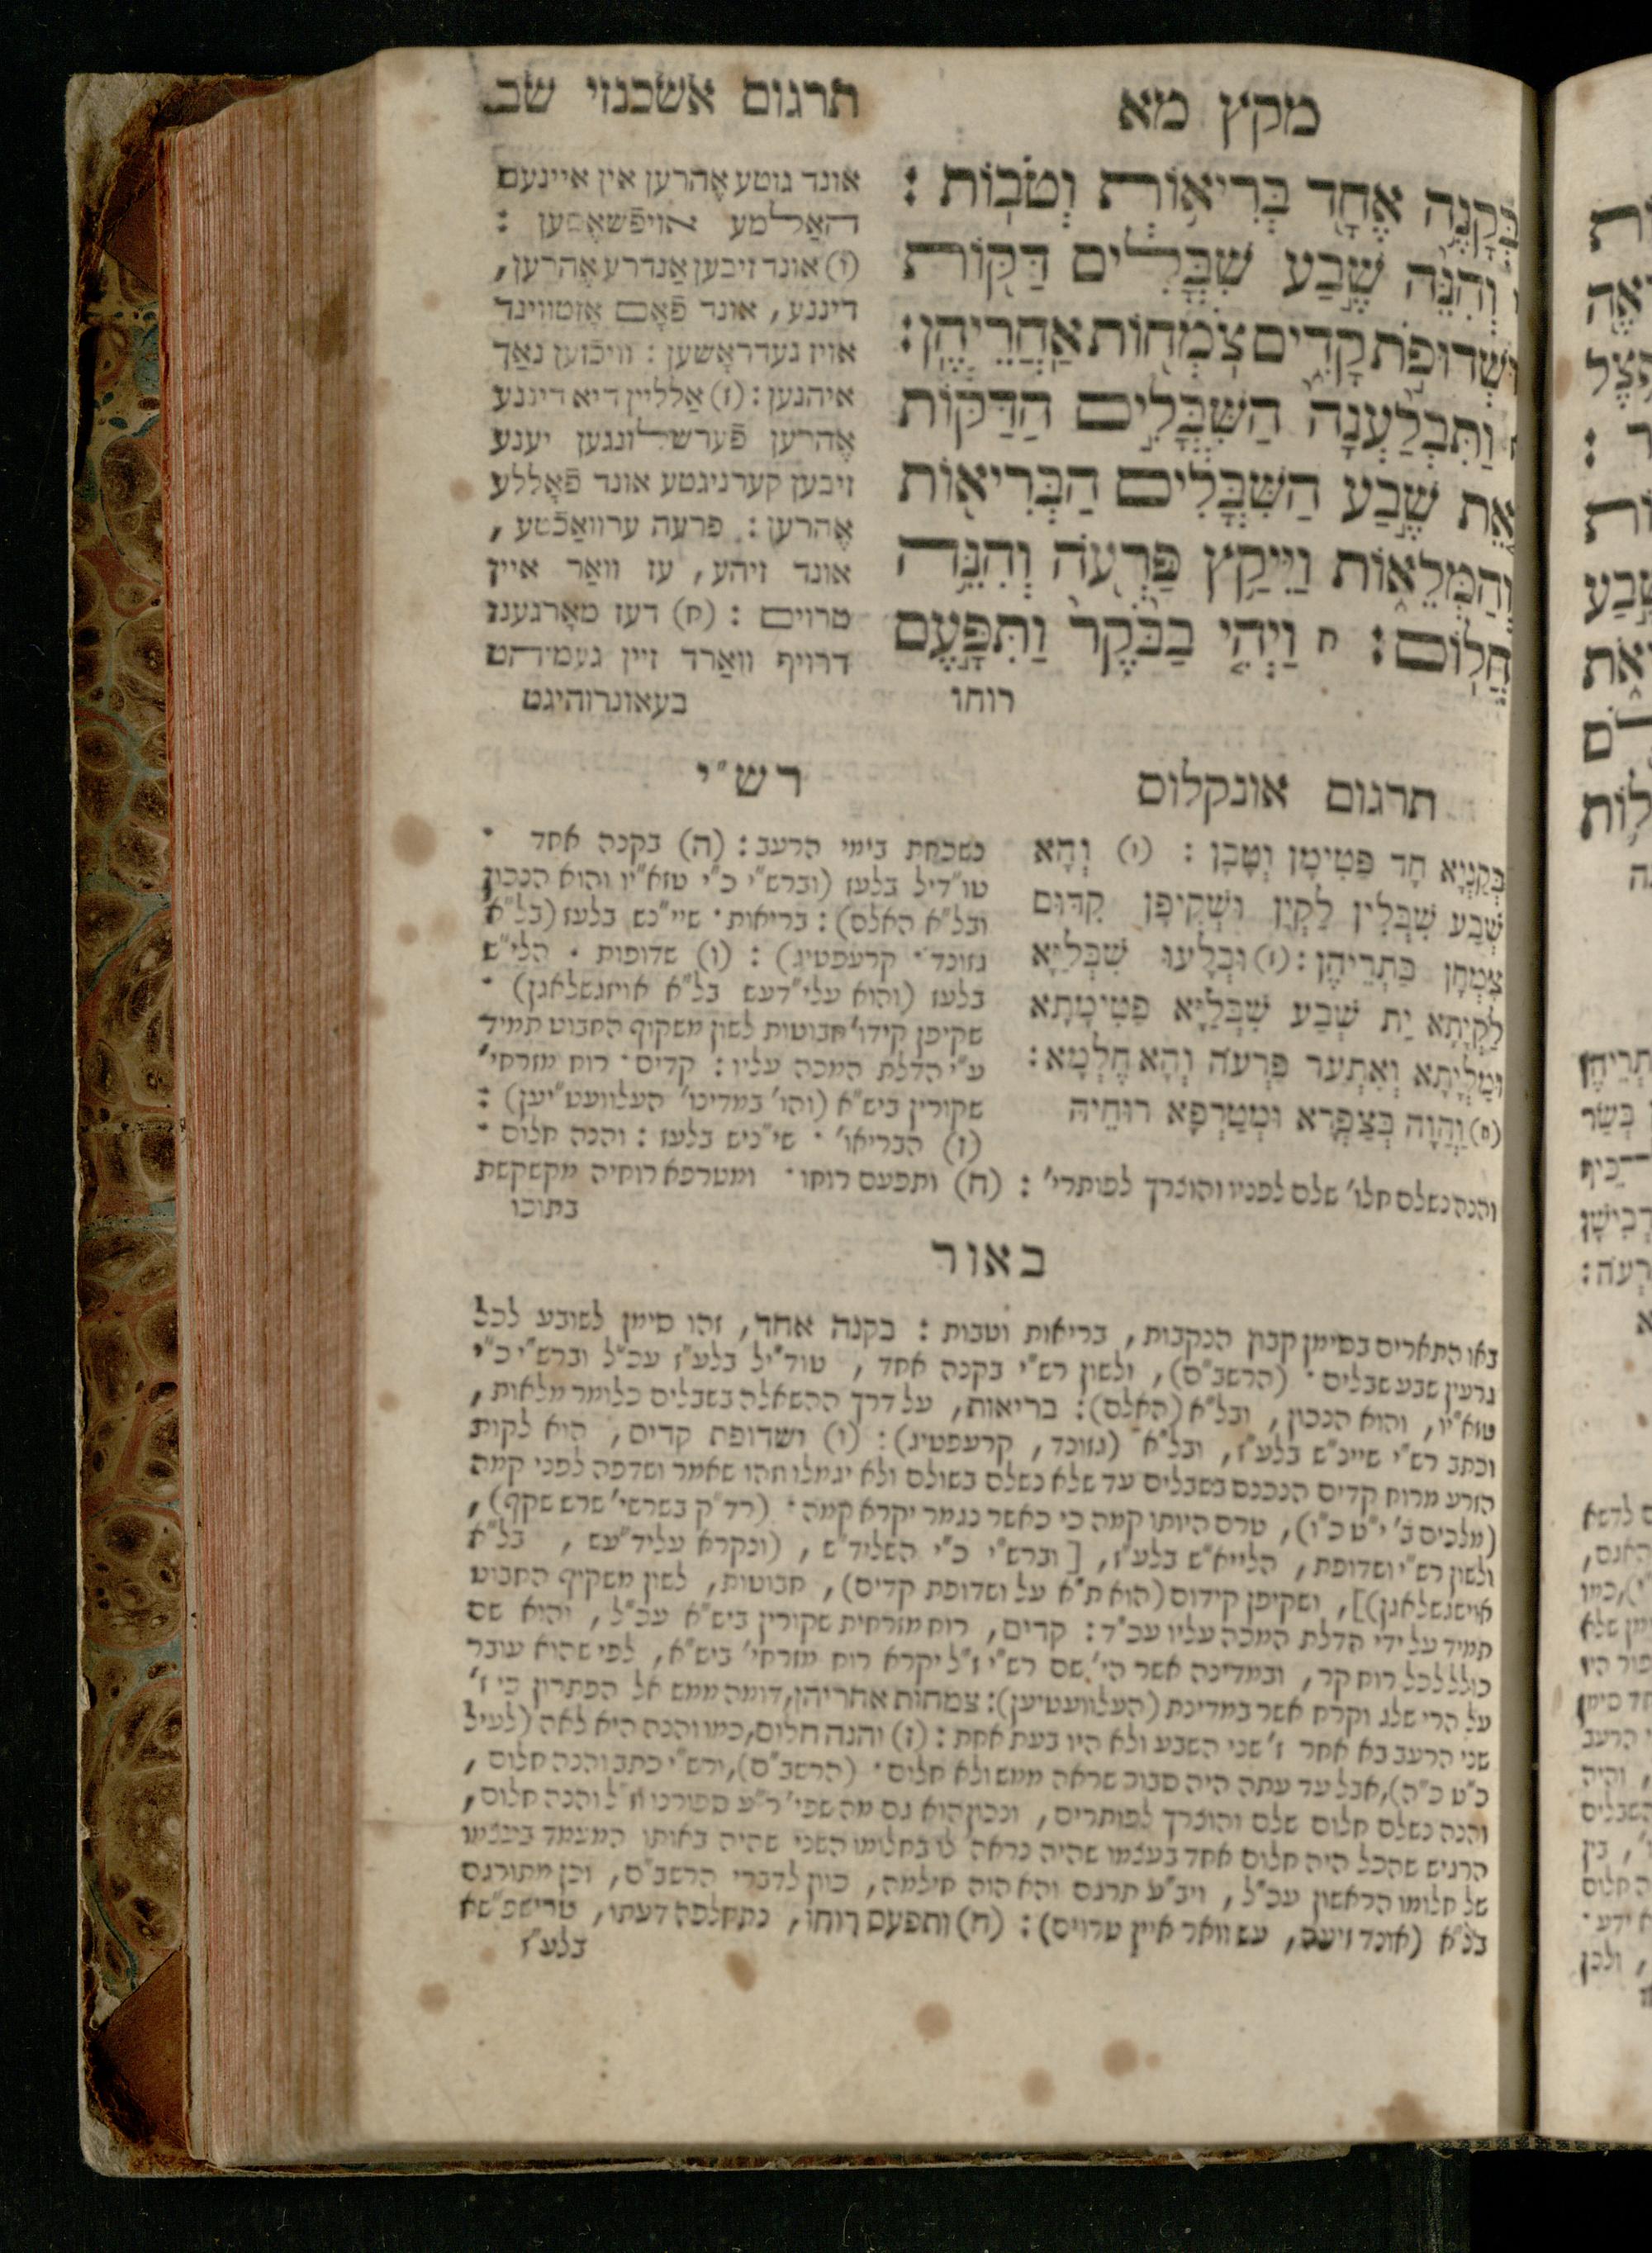 מקץ מא
תרגום אשכנזי שב
בְּקָנֶה אֶחָד בְּרִיאוֹת וְטֹבוֹת :
וְהִנֵּה שֶׁבַע שִׁבֳּלִים דַּקּוֹת
וּשְׁדוּפֹת קָדִים צֹמְחוֹת אַחֲרֵיהֶן :
וַתִּבְלַעְנָה הַשִּׁבֳּלִים הַדַּקּוֹת
אֵת שֶׁבַע הַשִּׁבֳּלִים הַבְּרִיאוֹת
וְהַמְּלֵאוֹת וַיִּיקַץ פַּרְעֹה וְהִנֵּה
חֲלוֹם : ח וַיְהִי בַבֹּקֶר וַתִּפָּעֶם
רוחו
אונד גוטע אֶהרען אין איינעם
האַלמע אויפֿשאָסען :
(ו) אונד זיבען אַנדרע אֶהרען ,
דיננע , אונד פֿאָם אָזטווינד
אויז געדראָשען : וויכֿזען נאַך
איהנען : (ז) אַלליין דיא דיננע
אֶהרען פֿערשלונגען יענע
זיבען קערניגטע אונד פֿאָללע
אֶהרען : פרעה ערוואַכֿטע ,
אונד זיהע , עז וואַר איין
טרוים : (ח) דעז מאָרגענז
דרויף וואַרד זיין געמיהט
בעאונרוהיגט
תרגום אונקלוס
בְּקַנְיָא חָד פַּטִּימָן וְטָבָן : (ו) וְהָא
שְׁבַע שִׁבְּלִין לַקְיָן וּשְׁקִיפָן קִדּוּם
צָמְחָן בַּתְרֵיהֶן : (ז) וּבְלָעוּ שִׁבְּלַיָּא
לַקְיָתָא יַת שְׁבַע שִׁבְּלַיָּא פַטִּימָתָא
וּמַלְיָתָא וְאִתְּעַר פַּרְעֹה וְהָא חֶלְמָא :
(ח) וַהֲוָה בְצַפְרָא וּמְטַרְפָא רוּחֵיהּ
רש"י
כשכחת בימי הרעב : (ה) בקנה אחד ·
טו"דיל בלעז (וברש"י כ"י טזא"יו והוא הנכון
ובל"א האלם) : בריאות · שיי"נש בלעז (בל"א
גזונד · קרעפטיג) : (ו) שדופות · הלי"ש
בלעז (והוא עלי"דעש בל"א אויזגשלאגן) ·
שקיפן קידו' חבוטות לשון משקוף החבוט תמיד
ע"י הדלת המכה עליו : קדים · רוח מזרחי'
שקורין ביש"א (והו' במדינו' העלוועט"יען) :
(ז) הבריאו' · שי"ניש בלעז : והנה חלום ·
והנה נשלם חלו' שלם לפניו והוצרך לפותרי' : (ח) ותפעם רוחו · ומטרפא רוחיה מקשקשת
בתוכו
באור
באו התארים בסימן קבוץ הנקבות , בריאות וטבות : בקנה אחד , זהו סימן לשובע לכל
גרעין שבע שבלים · (הרשב"ם) , ולשון רש"י בקנה אחד , טוד"יל בלע"ז עכ"ל וברש"י כ"י
טזא"יו , והוא הנכון , ובל"א (האלם) : בריאות , על דרך ההשאלה בשבלים כלומר מלאות ,
וכתב רש"י שיינ"ש בלע"ז , ובל"א (גזונד , קרעפטיג) : (ו) ושדופת קדים , הוא לקות
הזרע מרוח קדים הנכנס בשבלים עד שלא נשלם בשולם ולא יגמלו וזהו שאמר ושדפה לפני קמה
(מלכים ב' י"ט כ"ו) , טרם היותו קמה כי כאשר נגמר יקרא קמה · (רד"ק בשרשי' שרש שקף) ,
ולשון רש"י ושדופת , הלייא"ש בלע"ז , [וברש"י כ"י השליד"ש , (ונקרא עליד"עש , בל"א
אוישגשלאגן)] , ושקיפן קידום (הוא ת"א על ושדופת קדים) , חבוטות , לשון משקוף החבוט
תמיד על ידי הדלת המכה עליו עכ"ד : קדים , רוח מזרחית שקורין ביש"א עכ"ל , והוא שם
כולל לכל רוח קר , ובמדינה אשר הי' שם רש"י ז"ל יקרא רוח מזרחי' ביש"א , לפי שהוא עובר
על הרי שלג וקרח אשר במדינת (העלוועטיען) : צמחות אחריהן , דומה ממש אל הפתרון כי ז'
שני הרעב בא אחר ז' שני השבע ולא היו בעת אחת : (ז) והנה חלום , כמו והנה היא לאה (לעיל
כ"ט כ"ה) , אבל עד עתה היה סבור שראה ממש ולא חלום · (הרשב"ם) , ורש"י כתב והנה חלום ,
והנה נשלם חלום שלם והוצרך לפותרים , ונכון הוא גם מה שפי' ר"ע ספורנו וז"ל והנה חלום ,
הרגיש שהכל היה חלום אחד בעצמו שהיה נראה לו בחלומו השני שהיה באותו המעמד בעצמו
של חלומו הראשון עכ"ל , ויב"ע תרגם והא הוה חילמה , כוון לדברי הרשב"ם , וכן מתורגם
בל"א (אונד זיעה , עש וואר איין טרוים) : (ח) ותפעם רוחו , נתחלפה דעתו , טרישפ"שא
בלע"ז